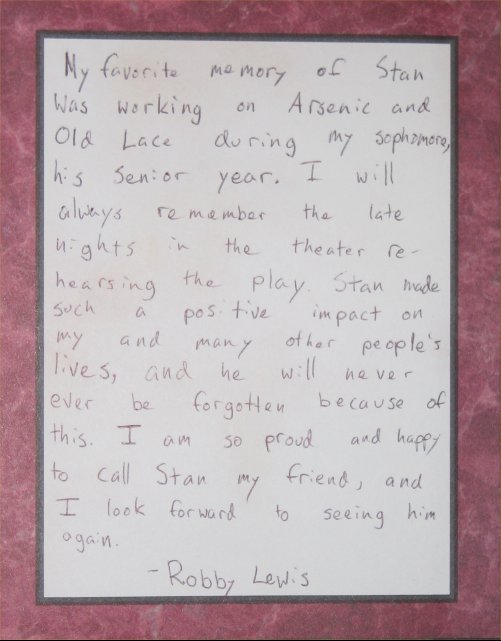 My favorite memory of Stan
was working on Arsenic and
Old Lace during my sophomore,
his senior year. I will
always remember the late
nights in the theater re-
hearsing the play. Stan made
such a positive impact on
my and many other people's
lives, and he will never
ever be forgotten because of
this. I am so proud and happy
to call Stan my friend, and
I look forward to seeing him
again.
- Robby Lewis